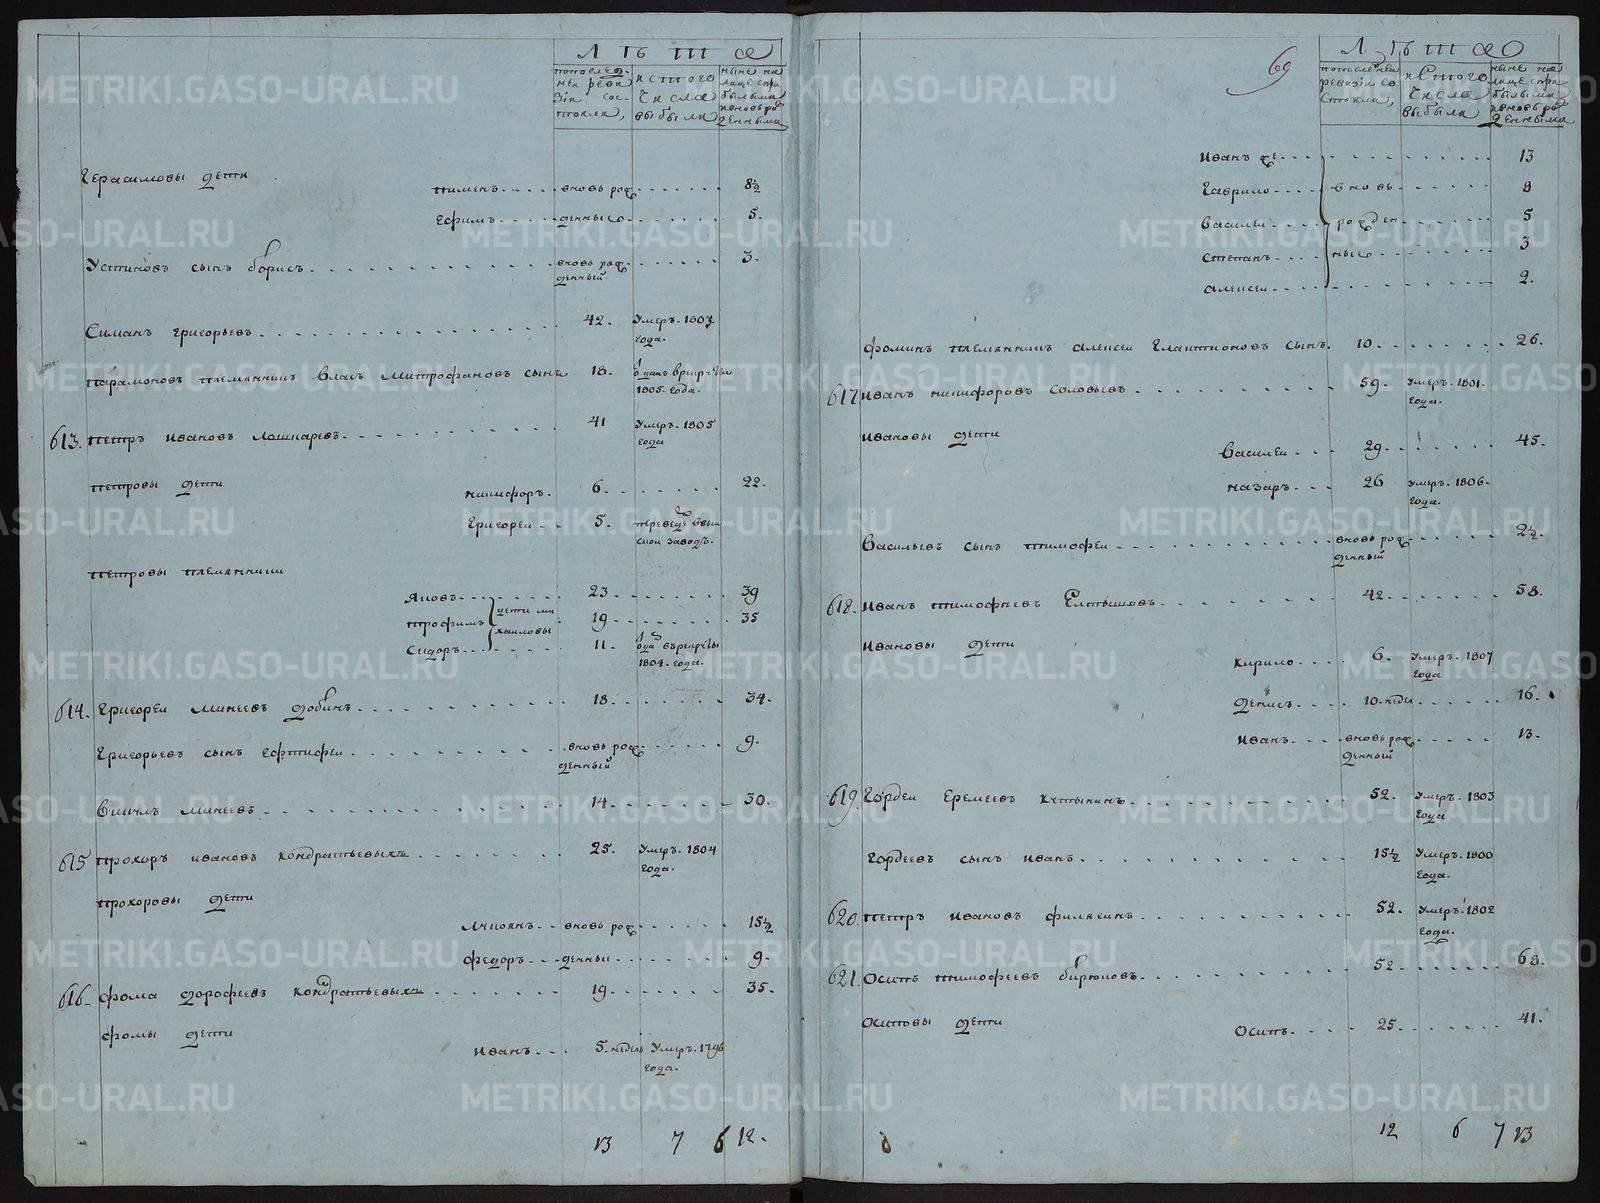 Лѣта
попослед
ней реви
зіи сос
тояли,
истого
числа
выбыли
ныне на
лице спри
былыми
ивновь ро
денными
Герасимовы дети
Пименъ вновь рож 8½
Ефимъ денные 5.
Устиновъ сынъ борисъ вновь рож 3.
денный
Симанъ григорьевъ 42. Умеръ 1807.
года.
Парамоновъ племянникъ власъ митрофановъ сынъ 18.
1805. года.
613. Петръ ивановъ лошкаревъ 41 Умеръ 1805
года
Петровы дети
никифоръ. 6. 22.
Григореи 5. переведе
скои заводъ.
Петровы племянники
Яковъ 23. 39
дети ми
трофимъ 19. 35
хаиловы
Сидоръ 11.
1804. года.
614. Григореи минеевъ добинъ 18. 34.
Григорьевъ сынъ ефтифеи вновь рож 9.
денный
минеевъ 14. 30.
615 прохоръ ивановъ кондратьевыхъ 25. Умеръ 1804
года.
прохоровы дети
Лукоянъ вновь рож 15½
федоръ денны 9.
616. фома дорофеевъ кондратьевыхъ 19. 35.
фомы дети
иванъ 5. недель Умеръ 1796
года.
13 7 6 12.
69
Лѣта
попоследней
ревизіи со
стояли,
исТого
числа
выбыли
ныне на
лице спри
былыми
ивновь ро
денными
иванъ же 13
гаврило вновь 8
василеи рожден 5
степанъ ные 3
алексеи 2.
фоминъ племянникъ алексеи галактионовъ сынъ. 10. 26.
617 иванъ никифоровъ соловьевъ 59. Умеръ 1801.
года.
ивановы дети
василеи 29. 45.
назаръ 26 умеръ 1806.
года.
Васильевъ сынъ тимофеи вновь рож 2½.
денный
618. иванъ тимофѣевъ Елтышовъ 42. 58.
ивановы дети
кирило 6. умеръ 1807
года
денисъ 10. неде 16.
иванъ вновь рож 13.
денный
619. Гордеи Еремеевъ 52. Умеръ 1803
года
Гордеевъ сынъ иванъ 15½ Умеръ 1800
года.
620. петръ ивановъ филкеинъ 52. Умеръ 1802
года.
621. Осипъ тимофеевъ бирюковъ 52. 68.
Осиповы дети
Осипъ 25. 41.
12 6 7 13
METRIKI.GASO-URAL.RU